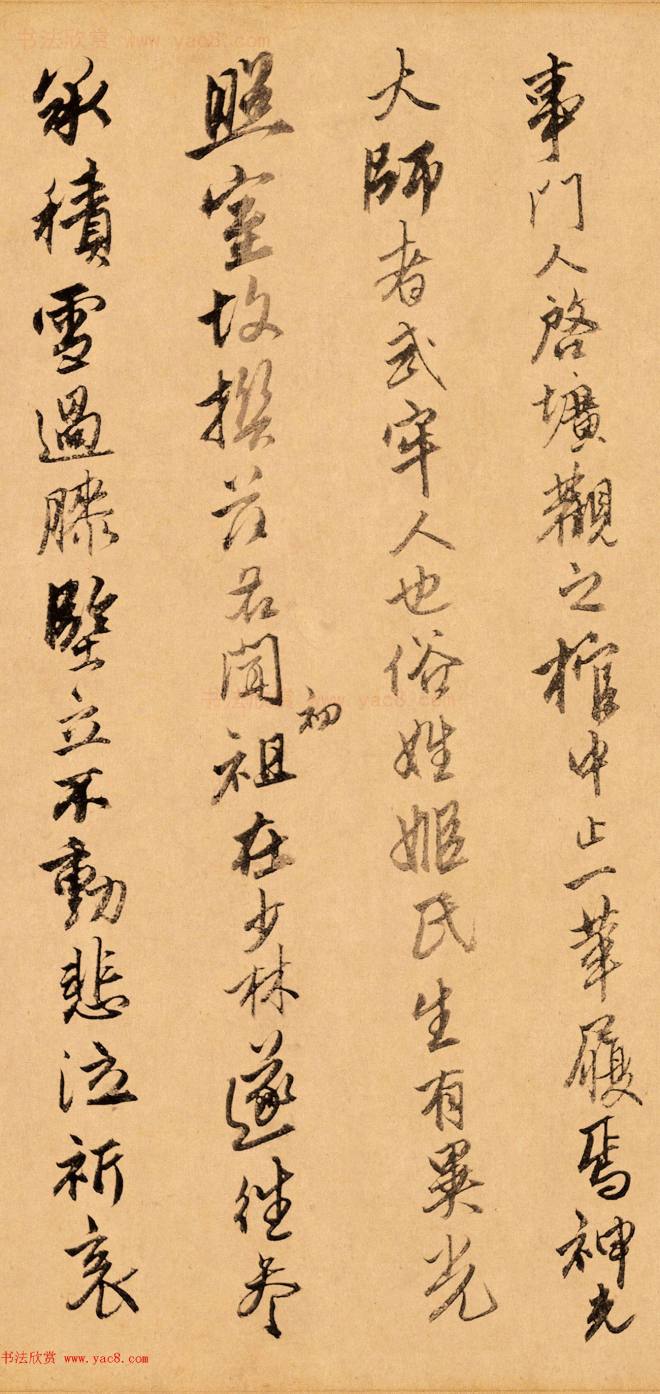 书法欣赏 www.yac8.com
事門人啓壙觀之棺中止一革履焉神光
大師者武牢人也俗姓姬氏生有異光
照室故撰茲名聞初祖在少林遂往參
承積雪過膝堅立不動悲泣祈哀
书法欣赏 www.yac8.com
书法欣赏 www.yac8.com